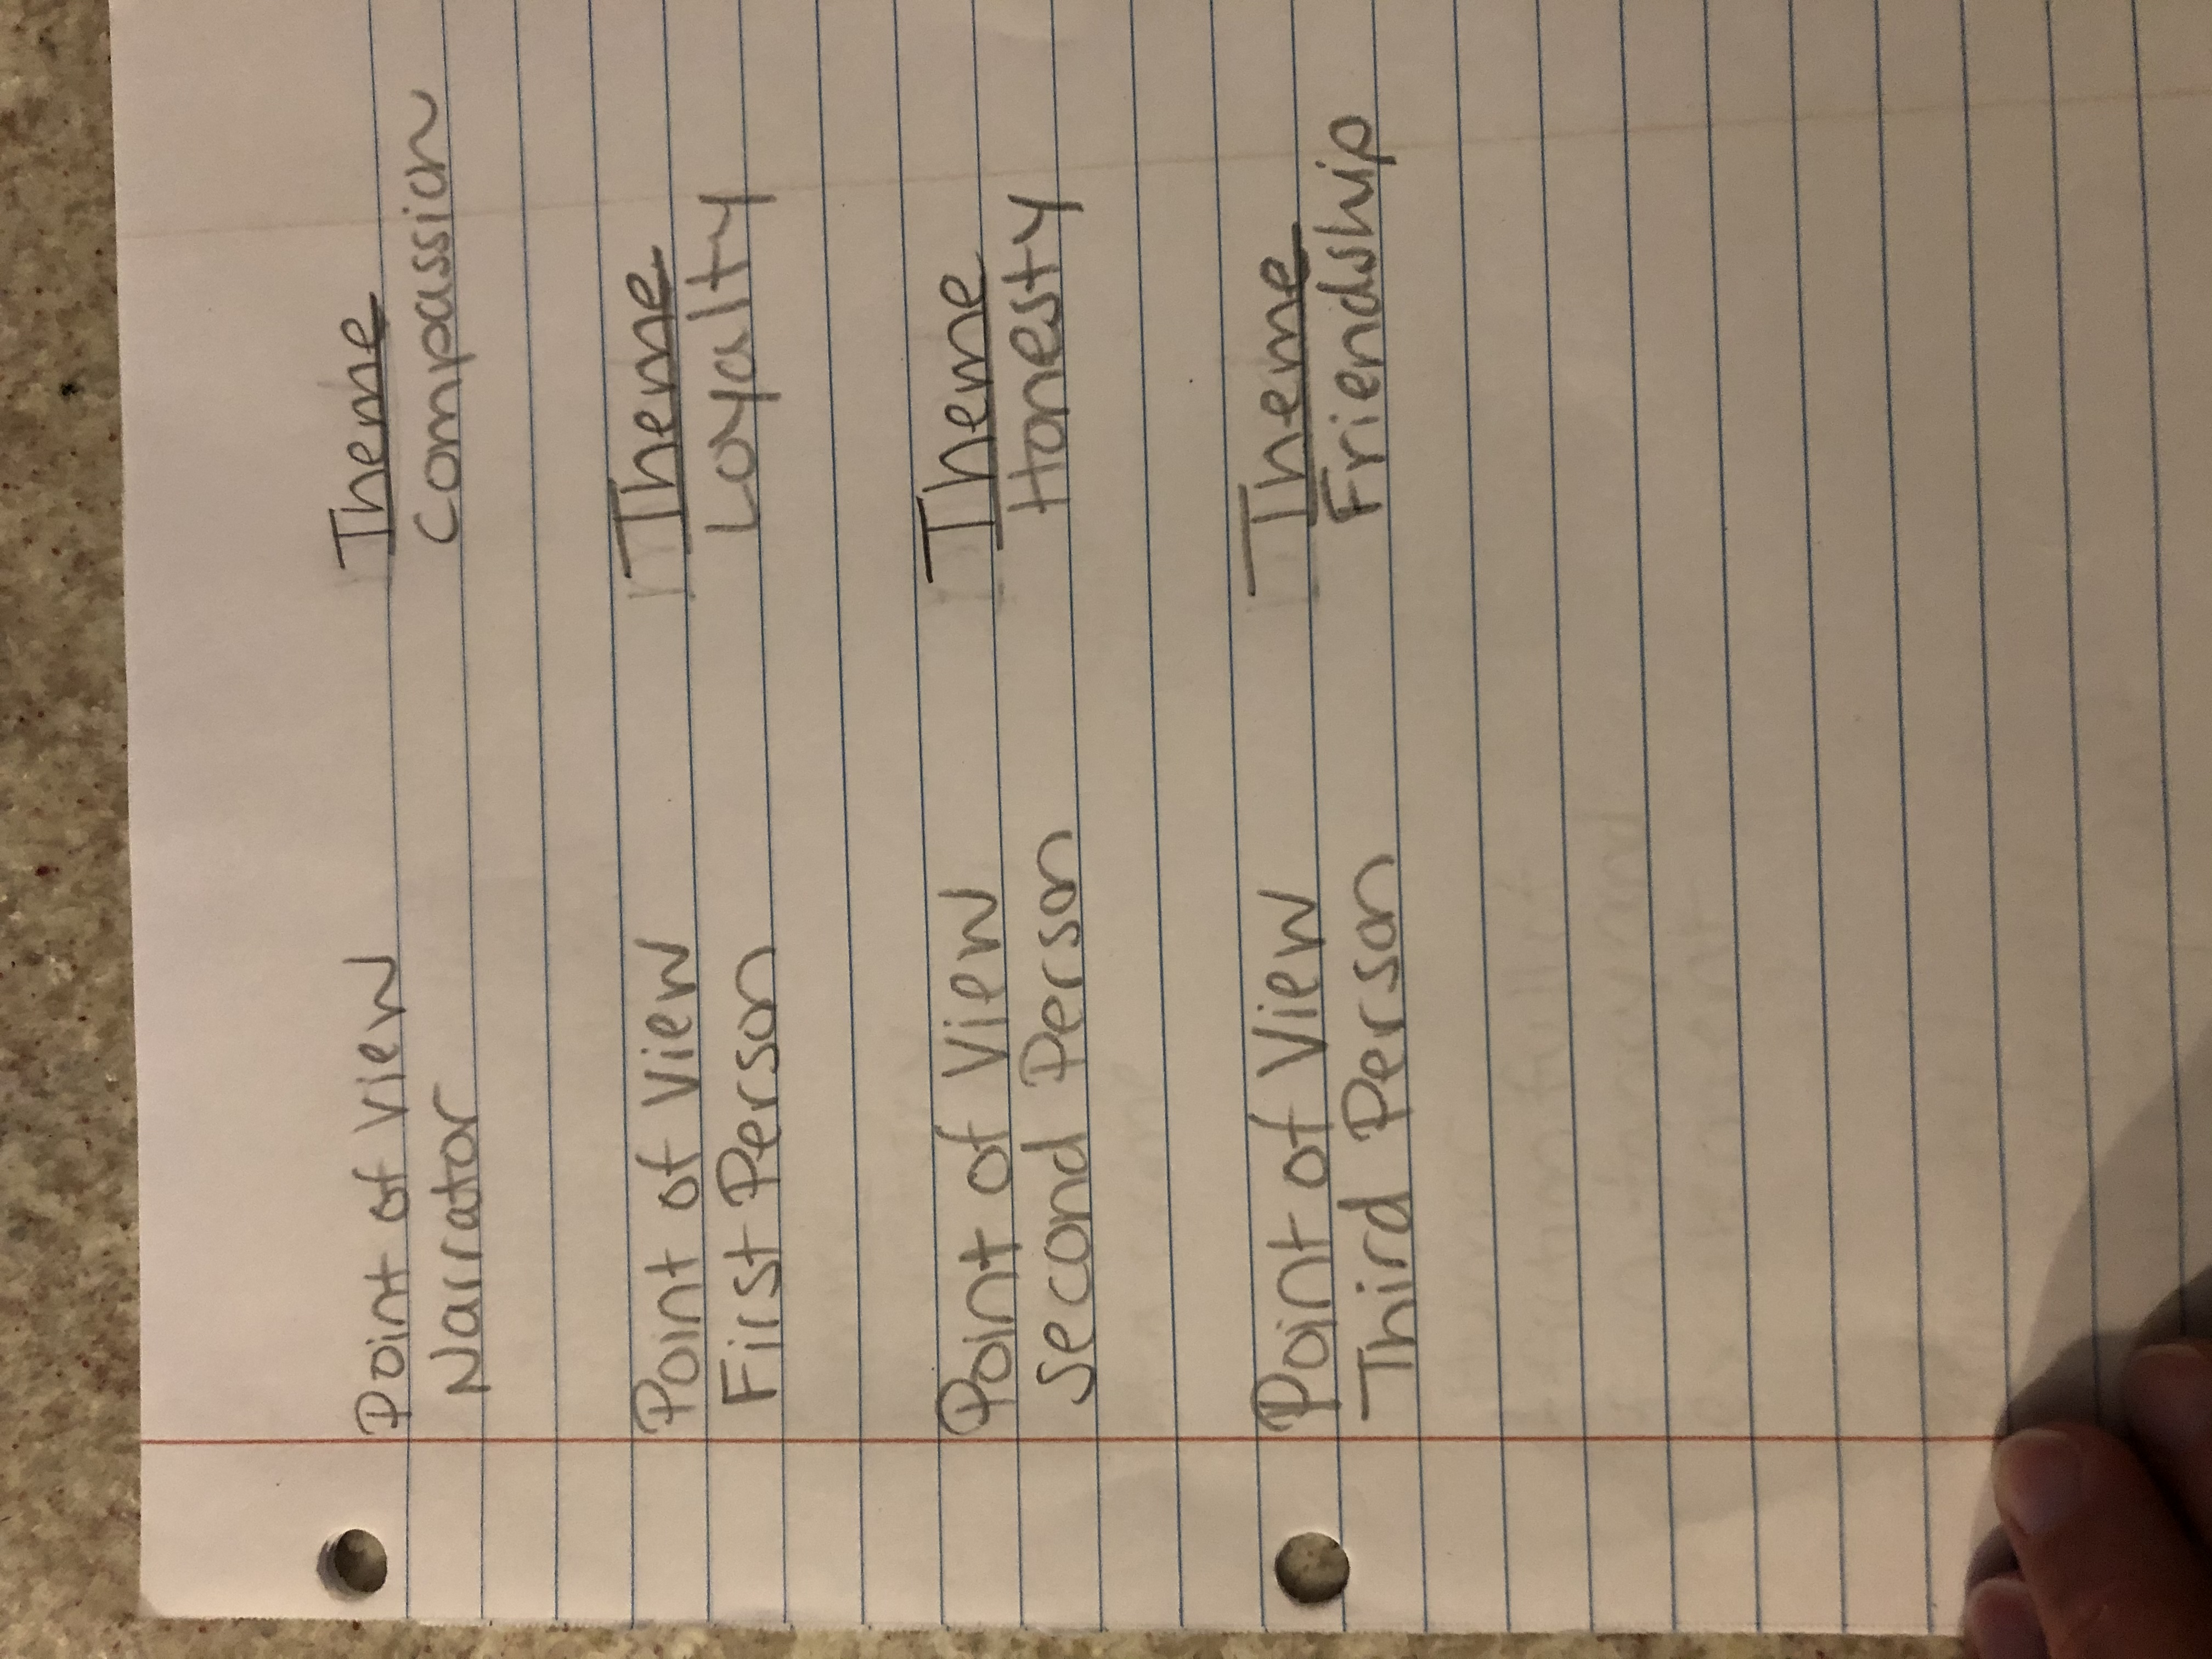 Point of View Theme
Narrator Compassion
Point of View Theme
First Person Loyalty
Point of View Theme
Second Person Honesty
Point of View Theme
Third Person Friendship